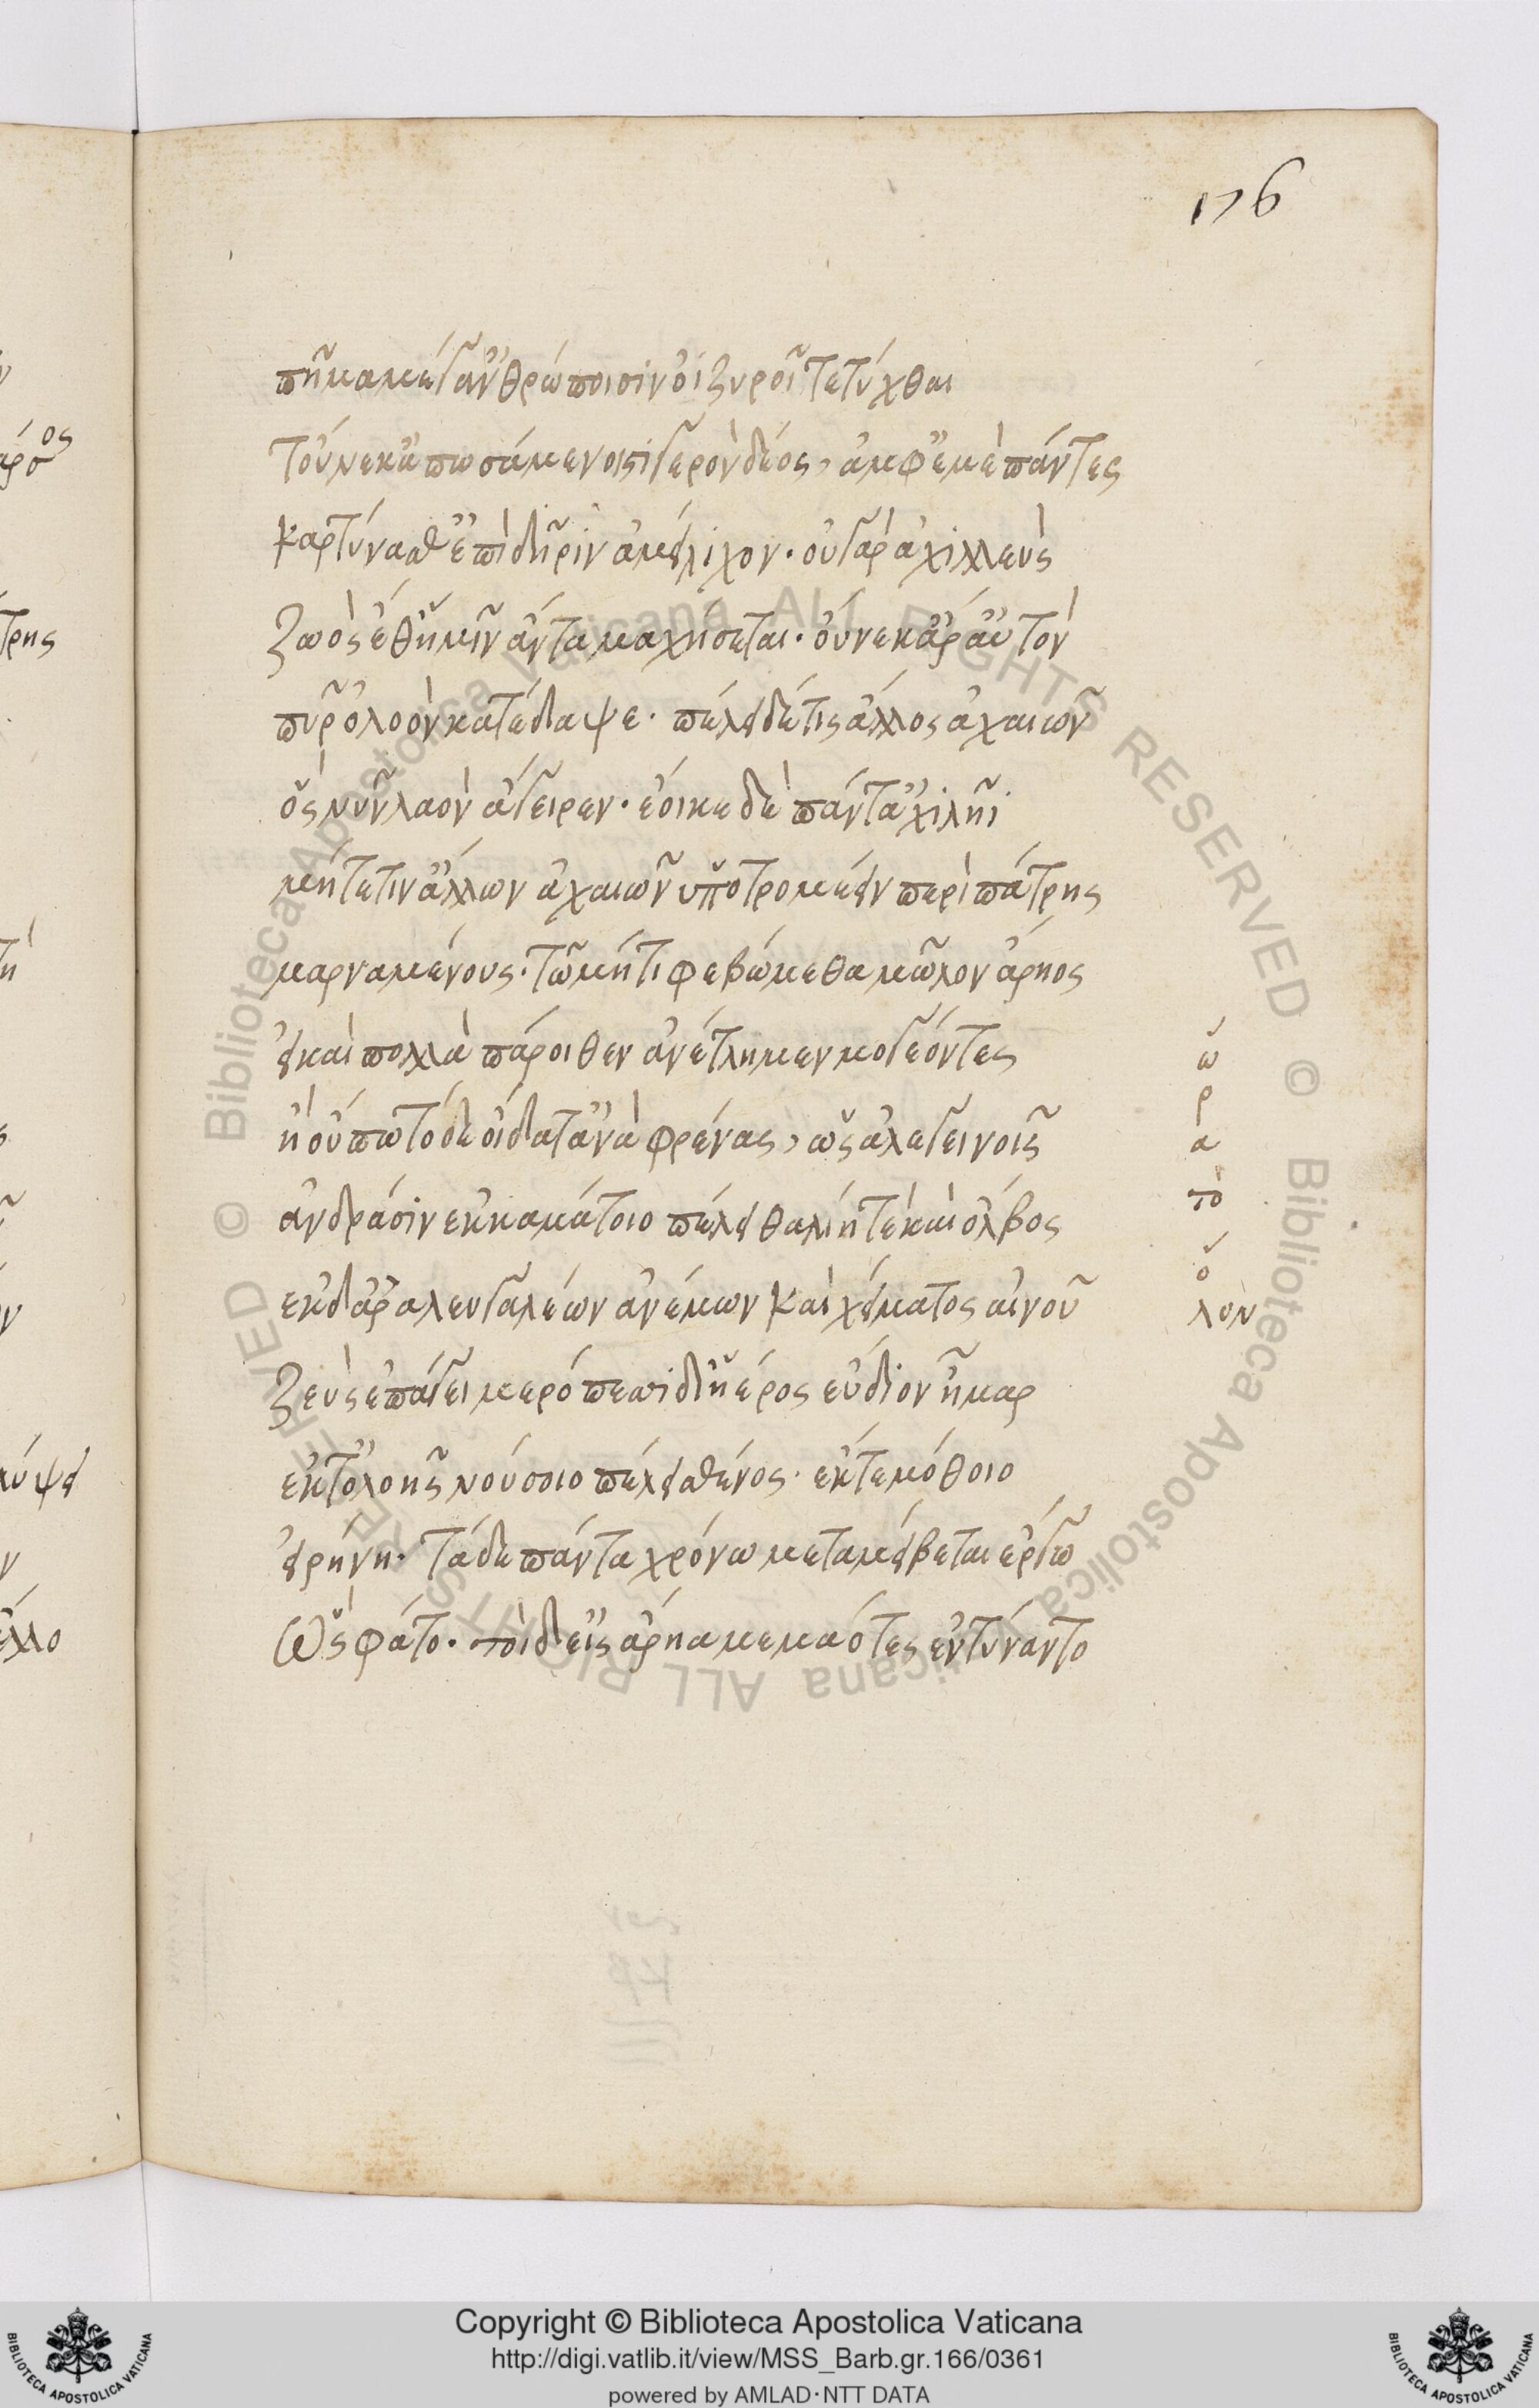 176
πῆμα μέγ' ἀνθρώποισιν ὀϊζυροῖς τετύχθαι
τούνεκ' ἀπωσάμενοι στυγερὸν δέος, ἀμφ' ἐμὲ πάντες
καρτύνασθ' ἐπὶ δῆριν ἀμείλιχον· οὐ γὰρ ἀχιλλεὺς
ζωὸς ἔθ' ἥμιν ἄντα μαχήσεται· οὕνεκ' ἄρ' αὐτὸν
πῦρ ὀλοὸν κατέδαψε· πέλει δέ τις ἄλλος ἀχαιῶν
ὃς νῦν λαὸν ἄγειρεν· ἔοικε δὲ πάντ' ἀχιλῆϊ
μήτε τιν' ἄλλων ἀχαιῶν ὑποτρομέειν περὶ πάτρης
μαρναμένους· τῶ μή τι φεβώμεθα μῶλον ἄρηος
εἰ καὶ πολλὰ πάροιθεν ἀνέτλημεν μογέοντες
ἢ οὔπω τόδε οἴδατ' ἀνὰ φρένας, ὡς ἀλεγεινοῖς
ἀνδράσιν ἐκ καμάτοιο πέλει θαλίη τε καὶ ὄλβος
ἐκ δ' ἄρα λευγαλέων ἀνέμων καὶ χείματος αἰνοῦ
ζεὺς ἐπάγει μερόπεσσι δι' ἠέρος εὔδιον ἦμαρ
ἔκ τ' ὀλοῆς νούσοιο πέλει σθένος· ἔκ τε μόθοιο
εἰρήνη· τὰ δὲ πάντα χρόνω μεταμείβεται ἔργω
Ὣς φάτο· τοὶ δ' εἰς ἄρηα μεμαότες ἐντύναντο
ὥ
ρ
α
τὸ
ὅ
λον
Copyright © Biblioteca Apostolica Vaticana
http://digi.vatlib.it/view/MSS_Barb.gr.166/0361
powered by AMLAD·NTT DATA